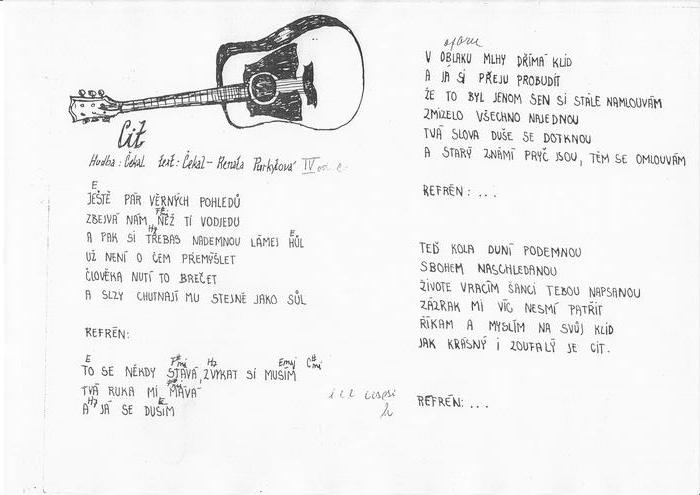 Cit
Hudba: Čekal text: Čekal - Renata Purkytová IV
E
JEŠTĚ PÁR VĚRNÝCH POHLEDŮ
ZBEJVÁ NÁM NĚŽ TI VODJEDU
H7 E
A PAK SI TŘEBAS NADEMNOU LÁMEJ HŮL
UŽ NENÍ O ČEM PŘEMÝŠLET
ČLOVĚKA NUTÍ TO BREČET
A SLZY CHUTNAJÍ MU STEJNĚ JAKO SŮL
REFRÉN:
E F#mi H7 Emaj C#mi
TO SE NĚKDY STÁVÁ, ZVYKAT SI MUSÍM
TVÁ RUKA MI MÁVÁ
H7 E
A JÁ SE DUSÍM
V OBLAKU MLHY DŘÍMÁ KLID
A JÁ SI PŘEJU PROBUDIT
ŽE TO BYL JENOM SEN SI STÁLE NAMLOUVÁM
ZMIZELO VŠECHNO NAJEDNOU
TVÁ SLOVA DUŠE SE DOTKNOU
A STARÝ ZNÁMÍ PRYČ JSOU, TĚM SE OMLOUVÁM
REFRÉN: ...
TEĎ KOLA DUNÍ PODEMNOU
SBOHEM NASCHLEDANOU
ŽIVOTE VRACÍM ŠANCI TEBOU NAPSANOU
ZÁZRAK MI VÍC NESMÍ PATŘIT
ŘÍKÁM A MYSLÍM NA SVŮJ KLID
JAK KRÁSNÝ I ZOUFALÝ JE CIT.
REFRÉN: ...